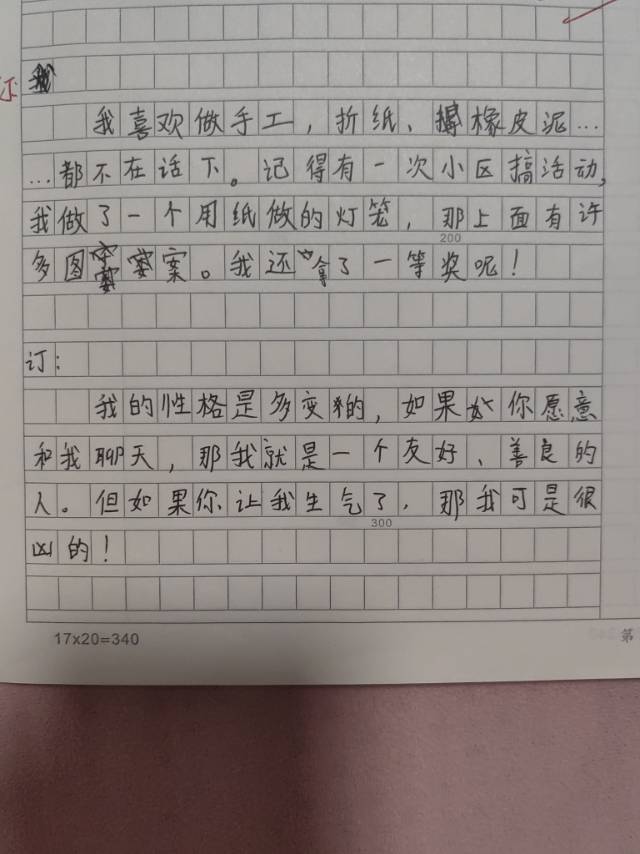 我喜欢做手工，折纸、橡皮泥…
…都不在话下。记得有一次小区搞活动，
我做了一个用纸做的灯笼，那上面有许
200
多图案。我还拿了一等奖呢！
订：
我的性格是多变的，如果你愿意
和我聊天，那我就是一个友好、善良的
人。但如果你让我生气了，那我可是很
300
凶的！
17x20=340
第